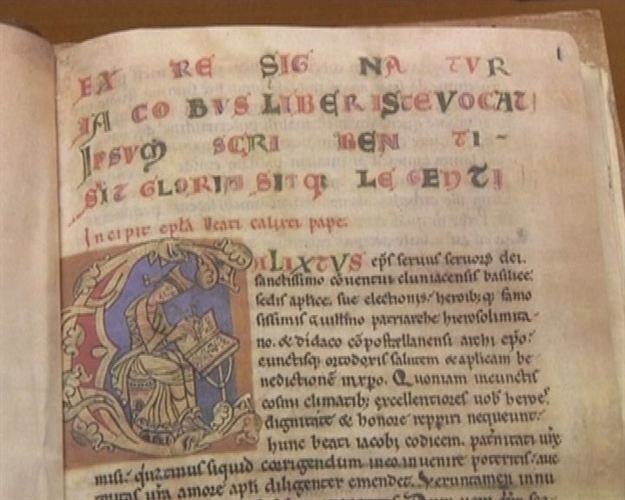 EX RE SIGNATUR
IACOBUS LIBER ISTE VOCATUR
IPSUM SCRIBENTI-
SIT GLORIA SITQ LEGENTI
Incipit epła beati calixti pape.
ALIXTVS epś seruus seruoꝝ dei.
sanctissimo conuentui cluniacensis basilice
sedis aplice. sue electionis. heroib; q; famo
sissimis Guillmo patriarche hierosolimita
no. & didaco cōpostellanensi archi epō.
cunctisq; ortodoxis salutem & aplicam be
nedictionē inxpo. Quoniam incunctis
cosmi climatib; excellentiores uob heroes
dignitate & honore reppiri nequeunt.
hunc beati iacobi codicem. paternitati urē
misi. quatinus siquid corrigendum ineo inuenire poteritis. auc
toritas urā amore apli diligenter emendet. Verumtamen innu